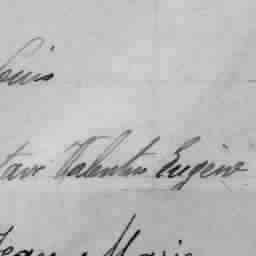 Louis
Valentin Eugène
Jean Marie